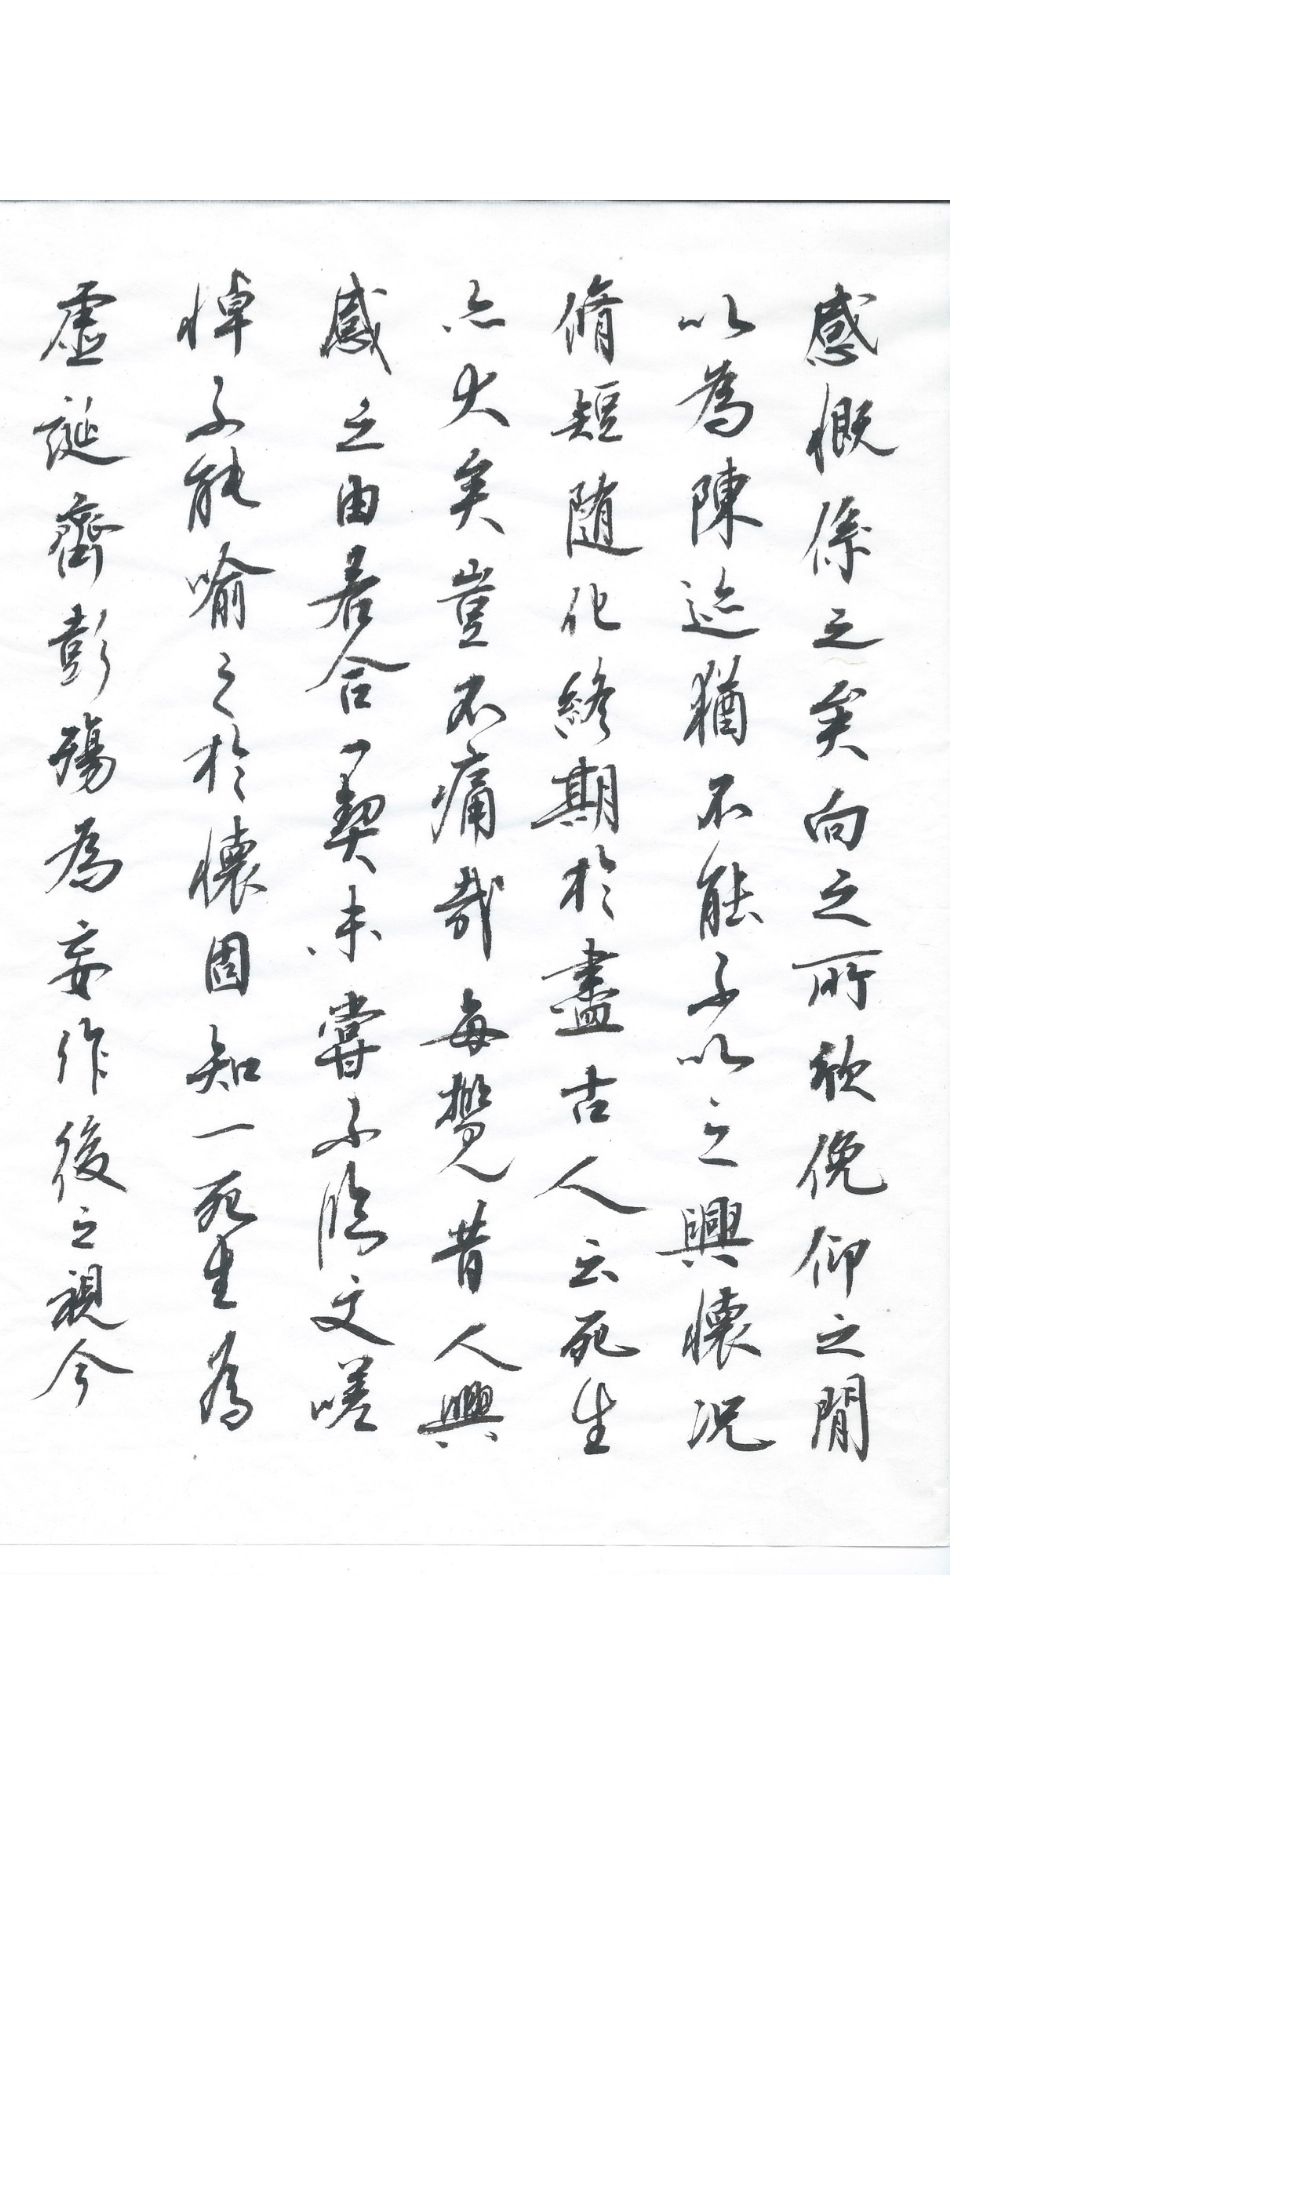 感慨係之矣向之所欣俛仰之閒
以為陳迹猶不能不以之興懷況
脩短隨化終期於盡古人云死生
亦大矣豈不痛哉每攬昔人興
感之由若合一契未嘗不臨文嗟
悼不能喻之於懷固知一死生為
虛誕齊彭殤為妄作後之視今